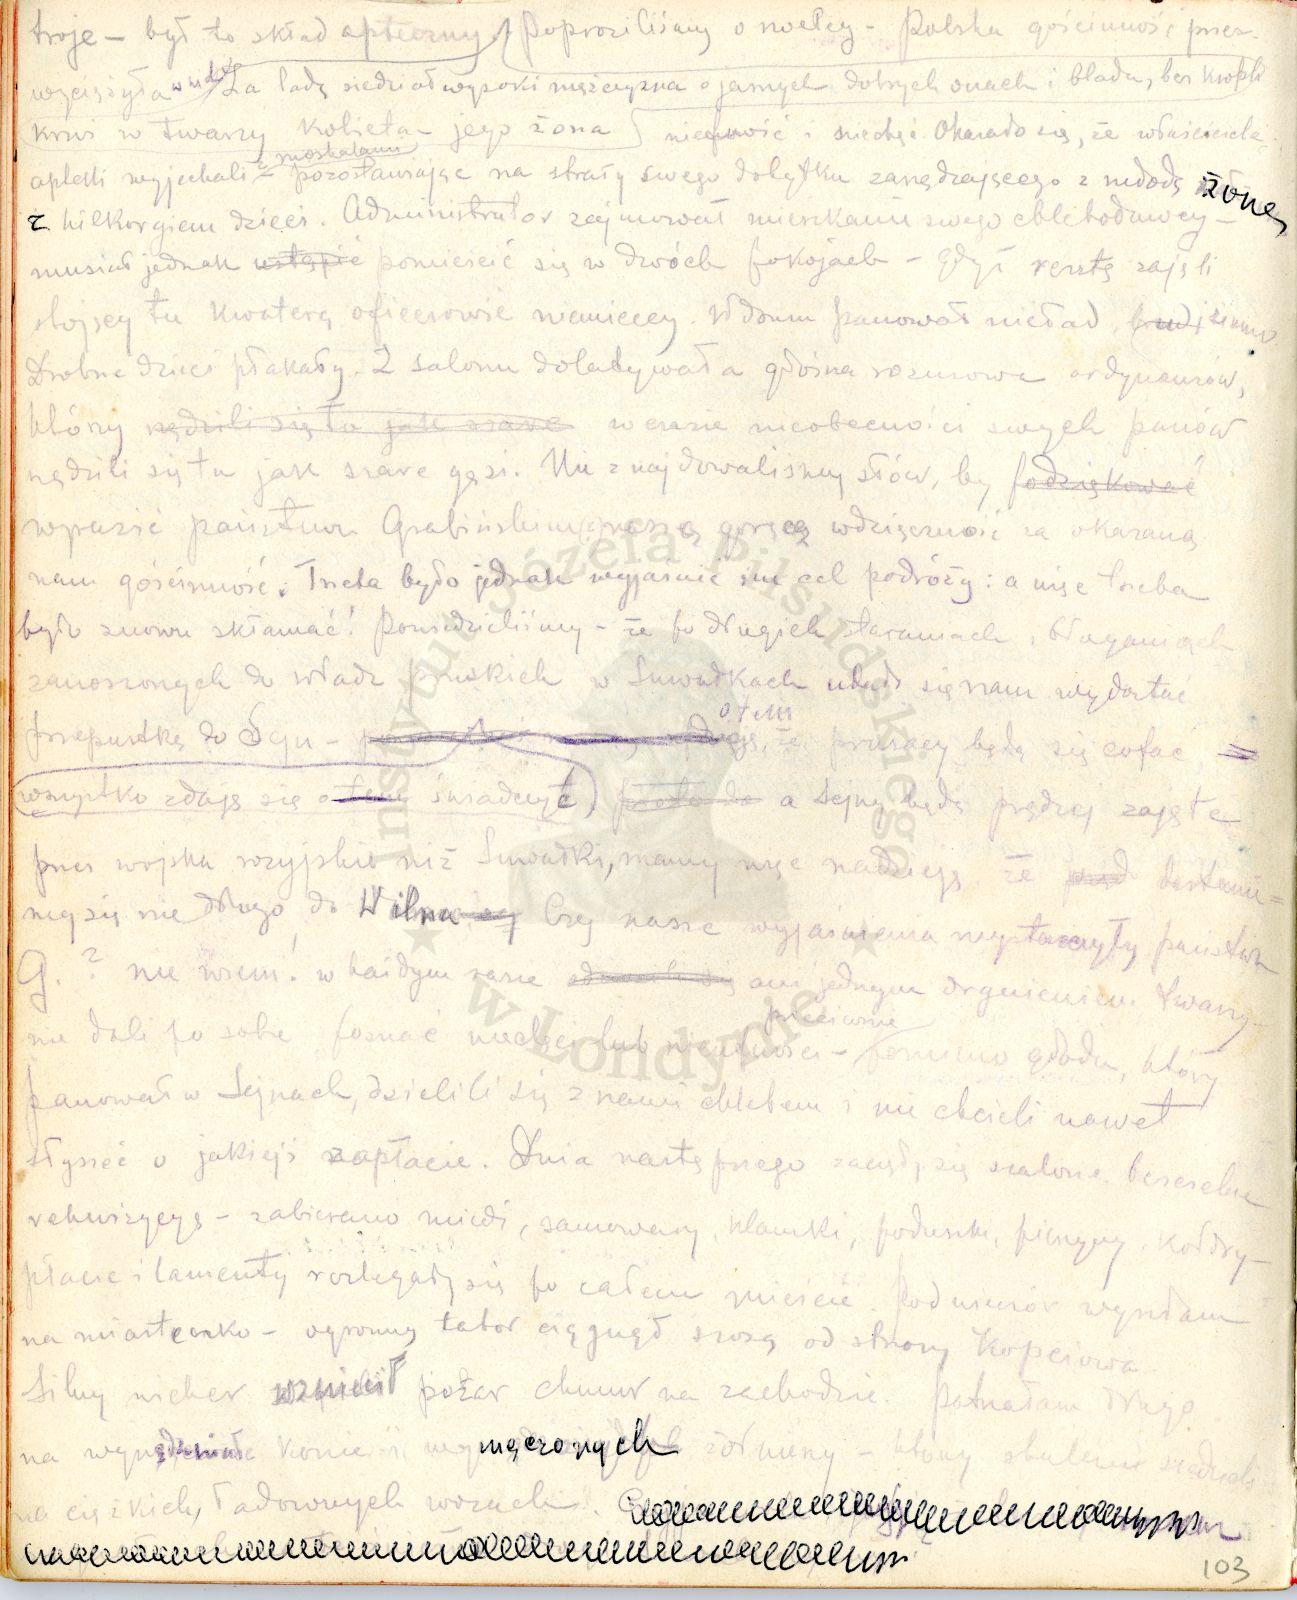 troje – był to skład apteczny. Poprosiliśmy o nocleg – Polska gościnność prze-
zwyciężyła wnet Za ladą siedział wysoki mężczyzna o jasnych dobrych oczach i blada, bez kropli
krwi w twarzy kobieta – jego żona nieufność i niechęć. Okazało się, że właściciele
apteki wyjechali z moskalami pozostawiając na straży swego dobytku zarządzającego z młodą żoną
z kilkorgiem dzieci. Administrator zajmował mieszkanie swego chlebodawcy –
musiał jednak ustąpić pomieścić się w dwóch pokojach – gdyż resztę zajęli
stojący tu kwaterą oficerowie niemieccy. W domu panował nieład, brud i zimno.
Drobne dzieci płakały. Z salonu dolatywała głośna rozmowa ordynansów,
którzy rządzili się tu jak szare w czasie nieobecności swych panów
rządzili się tu jak szare gęsi. Nie znajdowaliśmy słów, by podziękować
wyrazić państwu Grabińskim naszą gorącą wdzięczność za okazaną
nam gościnność. Trzeba było jednak wyjaśnić im cel podróży: a więc trzeba
było znowu skłamać! Powiedzieliśmy – że po długich staraniach i błaganiach
zanoszonych do władz pruskich w Suwałkach udało się nam wydostać
przepustkę do Sejn – o tem, że prusacy będą się cofać
wszystko zdaje się o tem świadczyć, a Sejny będą prędzej zajęte
przez wojska rosyjskie niż Suwałki, mamy więc nadzieję że dostanie-
my się nie długo do Wilna. Czy nasze wyjaśnienia wystarczyły państwu
G.? nie wiem! w każdym razie ani jednym drgnieniem twarzy
nie dali po sobie poznać niechęci lub nieufności – przeciwnie pomimo głodu, który
panował w Sejnach, dzielili się z nami chlebem i nie chcieli nawet
słyszeć o jakiejś zapłacie. Dnia następnego zaczęły się szalone, bezczelne
rekwizycye – zabierano miedź, samowary, klamki, poduszki, pierzyny, kołdry –
płacze i lamenty rozlegały się po całem mieście. Pod wieczór wyszłam
na miasteczko – ogromny tabor ciągnął szosą od strony Kopciowa.
Silny wicher wzniecił pożar chmur na zachodzie. Patrzałam długo
na wynędzniałe konie i męczonych żołnierzy którzy skuleni siedzieli
na ciężkich, ładownych wozach.
103
Instytut Józefa Piłsudskiego
w Londynie